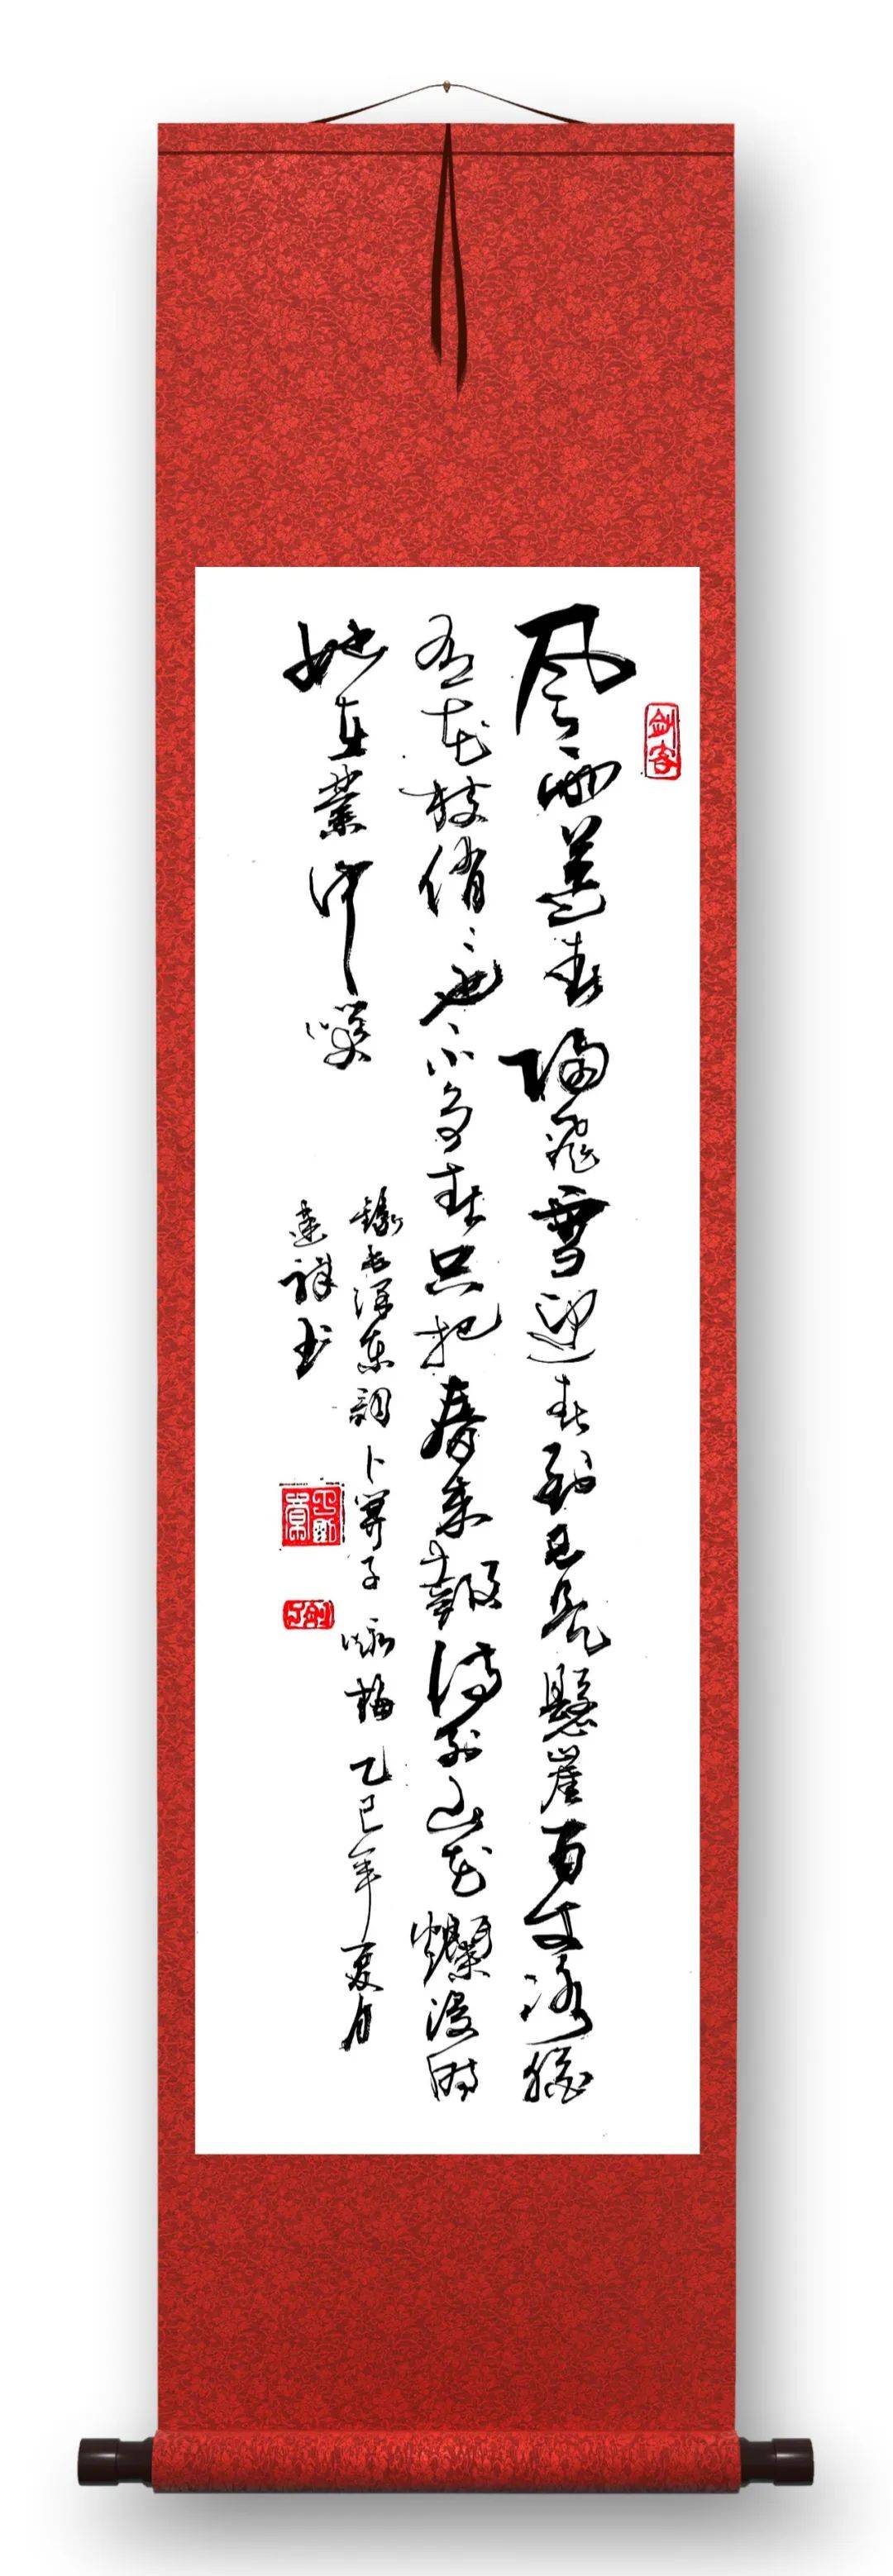 剑客
風雨送春歸飛雪迎春到已是懸崖百丈冰猶
有花枝俏〻也不争春只把春来報待到山花爛漫時
她在叢中咲
錄毛澤東詞卜算子詠梅乙巳年夏月
達祥书